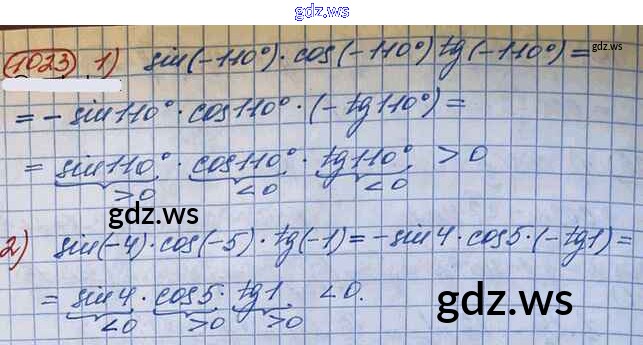 gdz.ws
1023 1) sin(-110°)·cos(-110°)tg(-110°)= gdz.ws
= -sin110°·cos110°·(-tg110°)=
= sin110°·cos110°·tg110° >0
>0 <0 <0
gdz.ws
2) sin(-4)·cos(-5)·tg(-1)=-sin4·cos5·(-tg1)=
= sin4·cos5·tg1 <0.
<0 >0 >0
gdz.ws